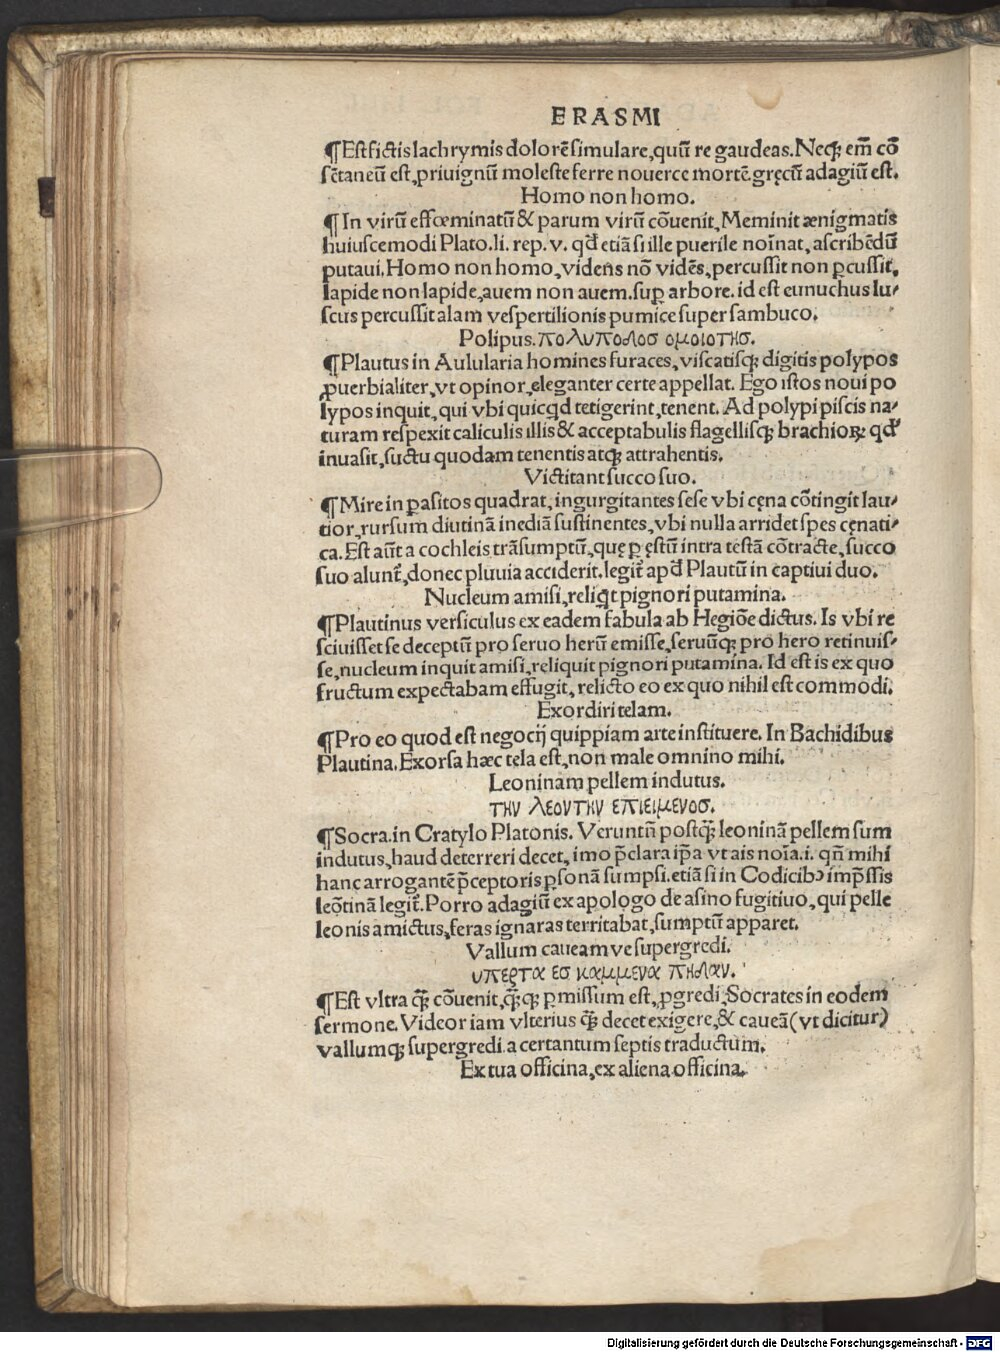 ERASMI
¶Est fictis lachrymis dolorē simulare, quū re gaudeas. Neq; em̄ cō
sētaneū est, priuignū moleste ferre nouerce mortē. gręcū adagiū est.
Homo non homo.
¶In virū effœminatū & parum virū cōuenit, Meminit ænigmatis
huiuscemodi Plato. li. rep. v. qđ etiā si ille puerile noīnat, ascribēdū
putaui, Homo non homo, videns nō vidēs, percussit non ꝑcussit,
lapide non lapide, auem non auem. suꝑ arbore. id est eunuchus lu⸗
scus percussit alam vespertilionis pumice super sambuco.
Polipus. πολυποδοσ ομοιοτησ.
¶Plautus in Aulularia homines furaces, viscatisq; digitis polypos
ꝓuerbialiter, vt opinor, eleganter certe appellat. Ego istos noui po
lypos inquit, qui vbi quicqđ tetigerint, tenent. Ad polypi piscis na⸗
turam respexit caliculis illis & acceptabulis flagellisq; brachioꝝ qđ
inuasit, suctu quodam tenentis atq; attrahentis.
Victitant succo suo.
¶Mire in ꝑasitos quadrat, ingurgitantes sese vbi cęna cōtingit lau⸗
tior, rursum diutinā inediā sustinentes, vbi nulla arridet spes cęnati⸗
ca. Est aūt a cochleis trāsumptū, quę ꝑ ęstū intra testā cōtracte, succo
suo alunt᷑, donec pluuia acciderit. legit᷑ apđ Plautū in captiui duo.
Nucleum amisi, reliq̇t pignori putamina.
¶Plautinus versiculus ex eadem fabula ab Hegiōe dictus. Is vbi re
sciuisset se deceptū pro seruo herū emisse, seruūq; pro hero retinuis⸗
se, nucleum inquit amisi, reliquit pignori putamina. Id est is ex quo
fructum expectabam effugit, relicto eo ex quo nihil est commodi.
Exordiri telam.
¶Pro eo quod est negocij quippiam arte instituere. In Bachidibus
Plautina. Exorsa hæc tela est, non male omnino mihi.
Leoninam pellem indutus.
την λεοντην επιειμενοσ.
¶Socra. in Cratylo Platonis. Veruntn̄ postq̄; leoninā pellem sum
indutus, haud deterreri decet, imo p̄clara ip̄a vt ais noīa. i. qn̄ mihi
hanc arrogantē p̄ceptoris ꝑsonā sumpsi. etiā si in Codicibꝰ imp̄ssis
leōtinā legit᷑. Porro adagiū ex apologo de asino fugitiuo, qui pelle
leonis amictus, feras ignaras territabat, sumptū apparet.
Vallum caueamve supergredi.
υπερτα εσ καμμενα πηδαν.
¶Est vltra q̄; cōuenit, q̄;q; ꝑmissum est, ꝓgredi. Socrates in eodem
sermone. Videor iam vlterius q̄; decet exigere, & caueā (vt dicitur)
vallumq; supergredi. a certantum septis traductum.
Ex tua officina, ex aliena officina.
Digitalisierung gefördert durch die Deutsche Forschungsgemeinschaft - DFG